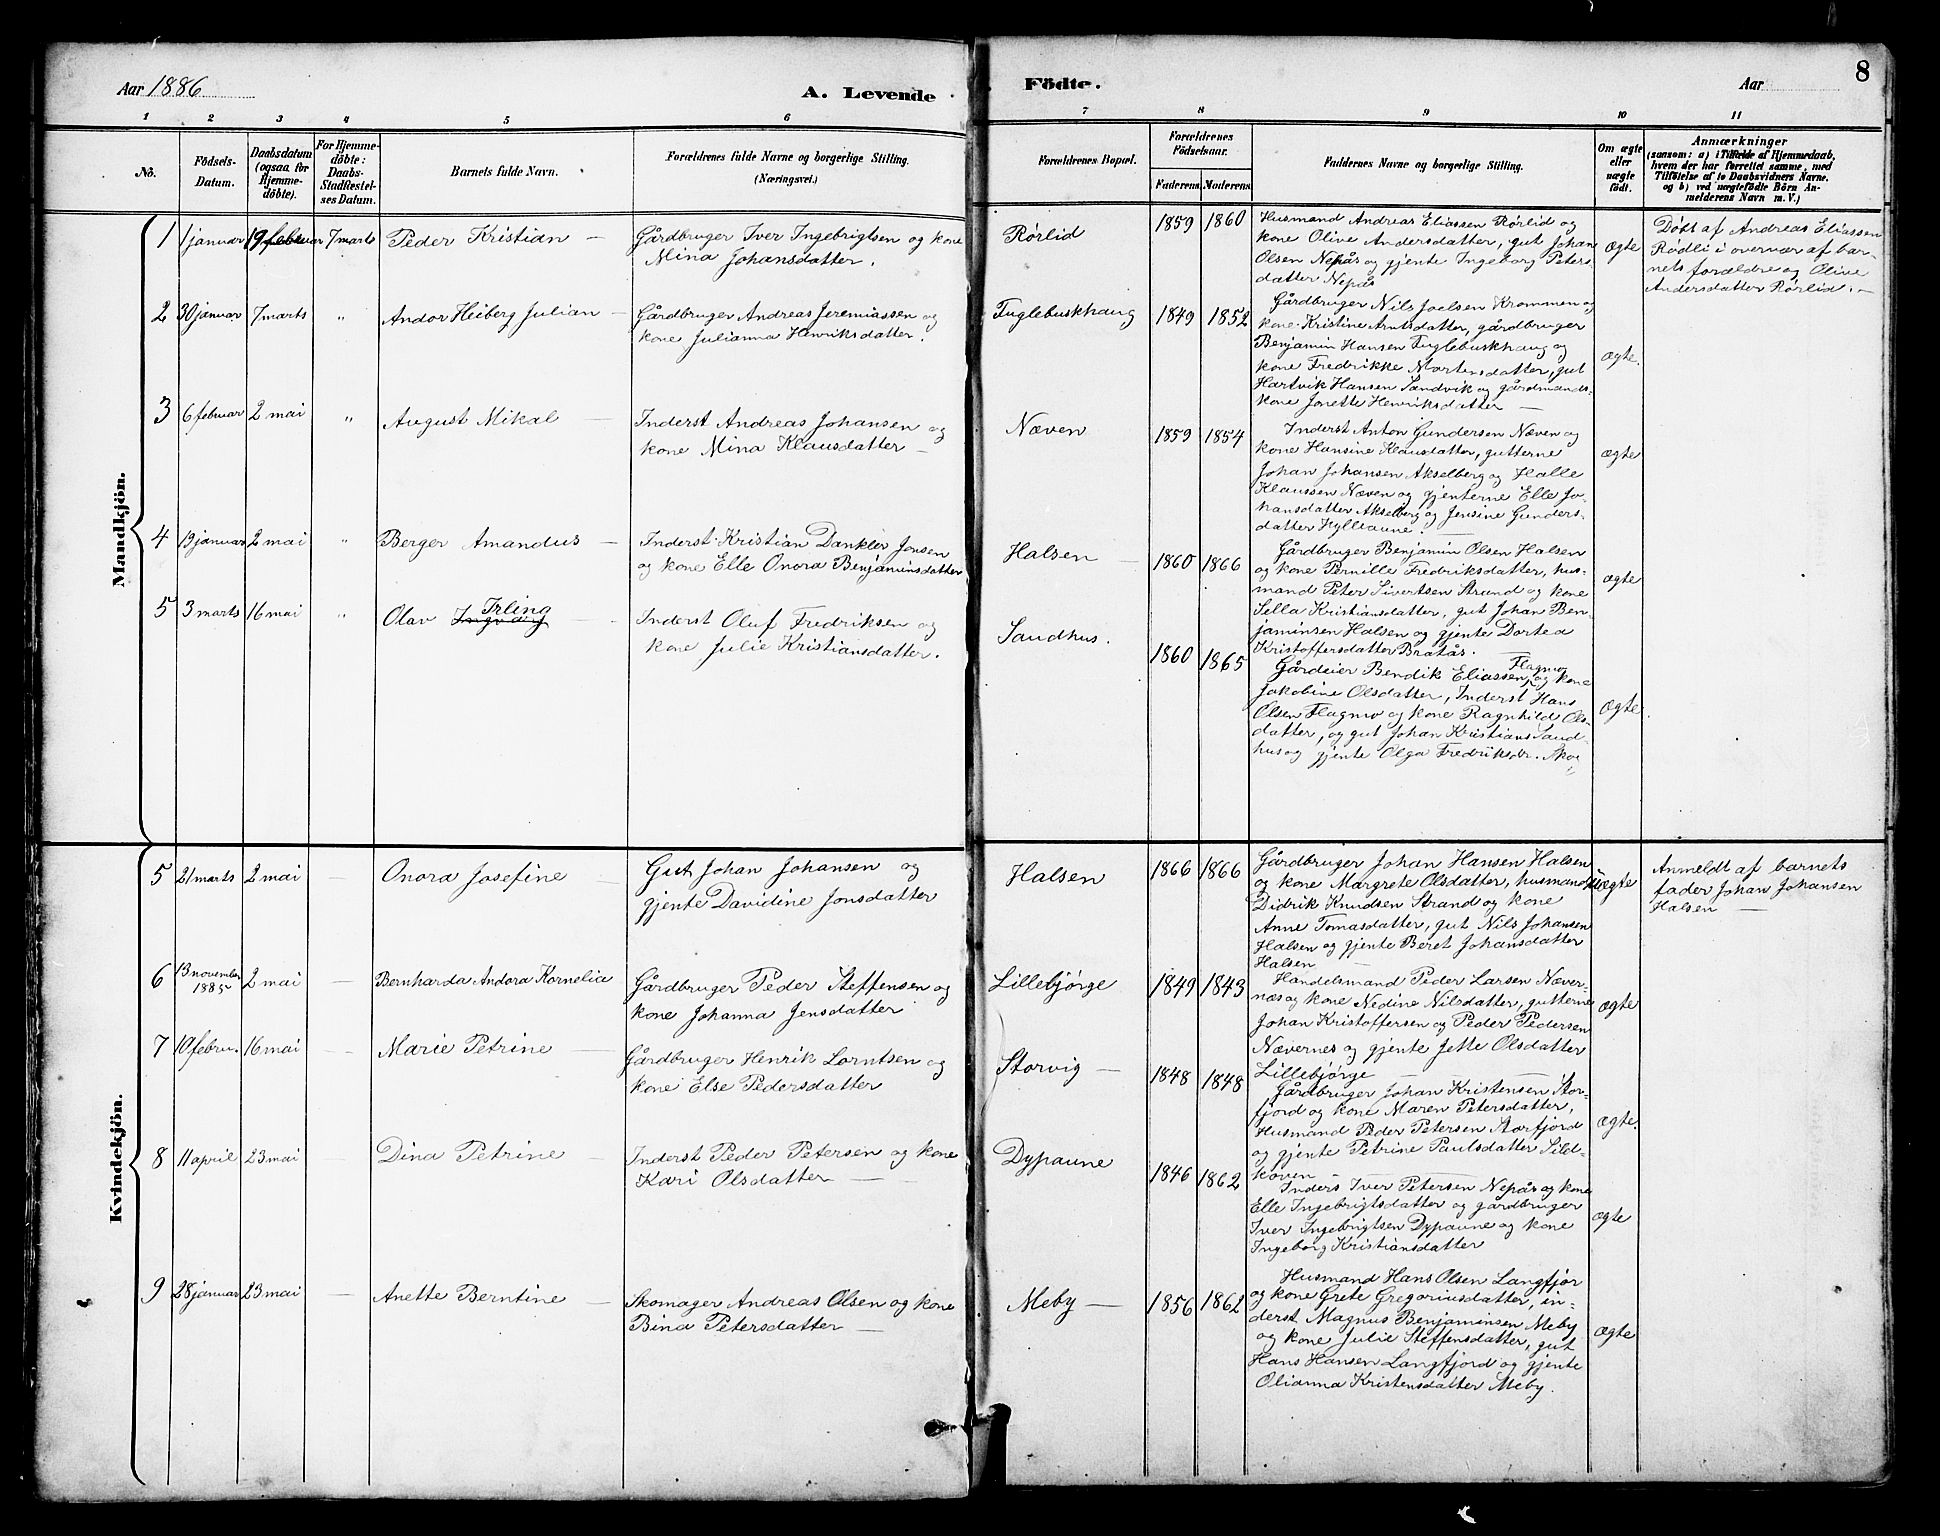 Aar 1886
A. Levende
Födte.
Aar
8
1 2 3 4 5 6 7 8 9 10 11
No.
Födsels-
Datum.
Daabsdatum
(ogsaa for
Hjemme-
döbte).
For Hjemme-
döbte:
Daabs-
Stadfæstel-
ses Datum.
Barnets fulde Navn.
Forældrenes fulde Navne og borgerlige Stilling.
(Næringsvei.)
Forældrenes Bopæl.
Forældrenes
Födselsaar.
Faderens Moderens
Faddernes Navne og borgerlige Stilling.
Om ægte
eller
uægte
födt.
Anmærkninger
(saasom: a) i Tilfælde af Hjemmedaab,
hvem der har forrettet samme, med
Tilföielse af to Daabsvidners Navne,
og b) ved uægtefödte Börn An-
melderens Navn m. V.)
Mandkjön.
1 1 januar 19 februar 7 marts Peder Kristian —
Gårdbruger Iver Ingebrigtsen og kone
Mina Johansdatter.
Rørlid
1859 1860
Husmand Andreas Eliassen Rørlid og
kone Olive Andersdatter, gut Johan
Olsen Nepås og gjente Ingeborg Peters-
datter Nepås
ægte
Døbt af Andreas Eliassen
Rødli i overvær af bar-
nets forældre og Olive
Andersdatter Rørlid. —
2 30 januar 7 marts " Andor Heiberg Julian —
Gårdbruger Andreas Jeremiassen og
kone Julianna Henriksdatter.
Fuglebuskhaug
1849 1852
Gårdbruger Nils Joelsen Krommen og
kone Kristine Arntsdatter, gårdbruger
Benjamin Hansen Fuglebuskhaug og
kone Fredrikke Martensdatter, gut
Hartvik Hansen Sandvik og gårdmands-
kone Jonette Henriksdatter —
ægte.
3 6 februar 2 mai " August Mikal —
Inderst Andreas Johansen og
kone Mina Klausdatter —
Næven
1859 1854
Inderst Anton Gundersen Næven og
kone Hansine Klausdatter, gutterne
Johan Johansen Akselberg og Halle
Klaussen Næven og gjenterne Elle Jo-
hansdatter Akselberg og Jensine Gunders-
datter Hylliaune. —
ægte
4 19 januar 2 mai " Berger Amandus —
Inderst Kristian Dankler Jonsen
og kone Elle Onora Benjaminsdatter
Halsen —
1860 1866
Gårdbruger Benjamin Olsen Halsen
og kone Pernille Fredriksdatter, hus-
mand Peter Sivertsen Strand og kone
Sella Kristiansdatter, gut Johan Ben-
jaminsen Halsen og gjente Dortea
Kristoffersdatter Bratås. —
ægte
5 3 marts 16 mai " Olav Ingvald Irling —
Inderst Oluf Fredriksen og
kone Julie Kristiansdatter.
Sandhus.
1860 1865
Gårdeier Bendik Eliassen Flagmo og kone
Jakobine Olsdatter, Inderst Hans
Olsen Flagmo og kone Ragnhild Ols-
datter, og gut Johan Kristians. Sand-
hus og gjente Olga Fredriksdr.
ægte
Kvindekjön.
5 21 marts 2 mai — Onora Josefine —
Gut Johan Johansen og
gjente Davidine Jonsdatter
Halsen
1866 1866
Gårdbruger Johan Hansen Halsen
og kone Margrete Olsdatter, husmand
Didrik Knudsen Strand og kone
Anne Tomasdatter, gut Nils Johansen
Halsen og gjente Beret Johansdatter
Halsen —
uægte
Anmeldt af barnets
fader Johan Johansen
Halsen —
6 13 november 1885 2 mai — Bernharda Andora Kornelia
Gårdbruger Peder Steffensen og
kone Johanna Jensdatter
Lillebjørge
1849 1843
Handelsmand Peder Larsen Næver-
næs og kone Nedine Nilsdatter, gutterne
Johan Kristoffersen og Peder Pedersen
Nævernes og gjente Jette Olsdatter
Lillebjørge —
ægte
7 10 febru. 16 mai — Marie Petrine —
Gårdbruger Henrik Lorntsen og
kone Else Pedersdatter
Storvig —
1848 1848
Gårdbruger Johan Kristensen Stor-
fjord og kone Maren Petersdatter,
Husmand Peder Petersen Storfjord
og gjente Petrine Paulsdatter Sild-
koven —
ægte.
8 11 april 23 mai — Dina Petrine —
Inderst Peder Petersen og kone
Kari Olsdatter —
Dypaune
1846 1862
Inders Iver Petersen Nepås og kone
Elle Ingebrigtsdatter og gårdbruger
Iver Ingebrigtsen Dypaune og kone
Ingeborg Kristiansdatter
ægte
9 28 januar 23 mai — Anette Berntine —
Skomager Andreas Olsen og kone
Bina Petersdatter —
Meby —
1856 1862
Husmand Hans Olsen Langfjor
og kone Grete Gregoriusdatter, in-
derst Magnus Benjaminsen Meby
og kone Julie Steffensdatter, gut
Hans Hansen Langfjord og gjente
Olianna Kristensdatter Meby.
ægte